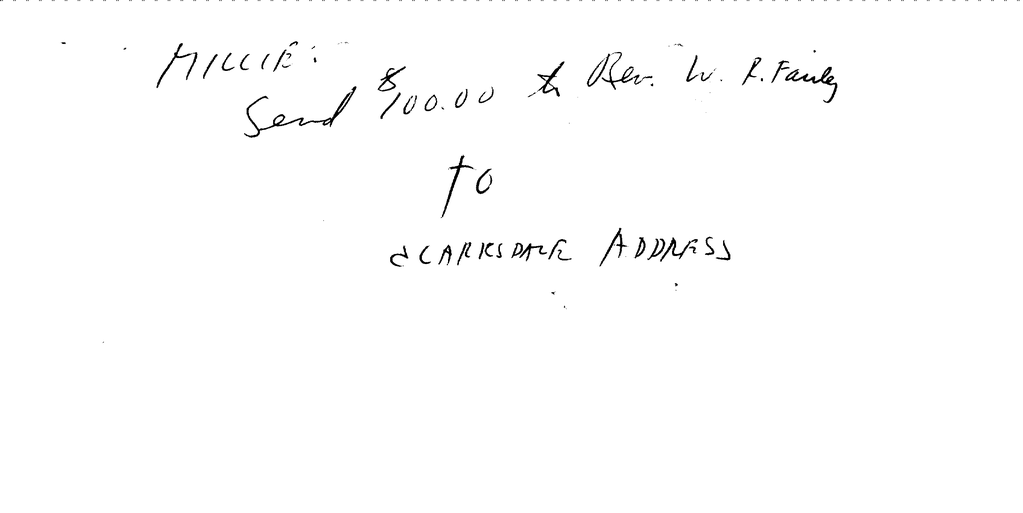 MILLIE:
Send $100.00 to Rev. W. R. Fairley
to
CLARKSDALE ADDRESS